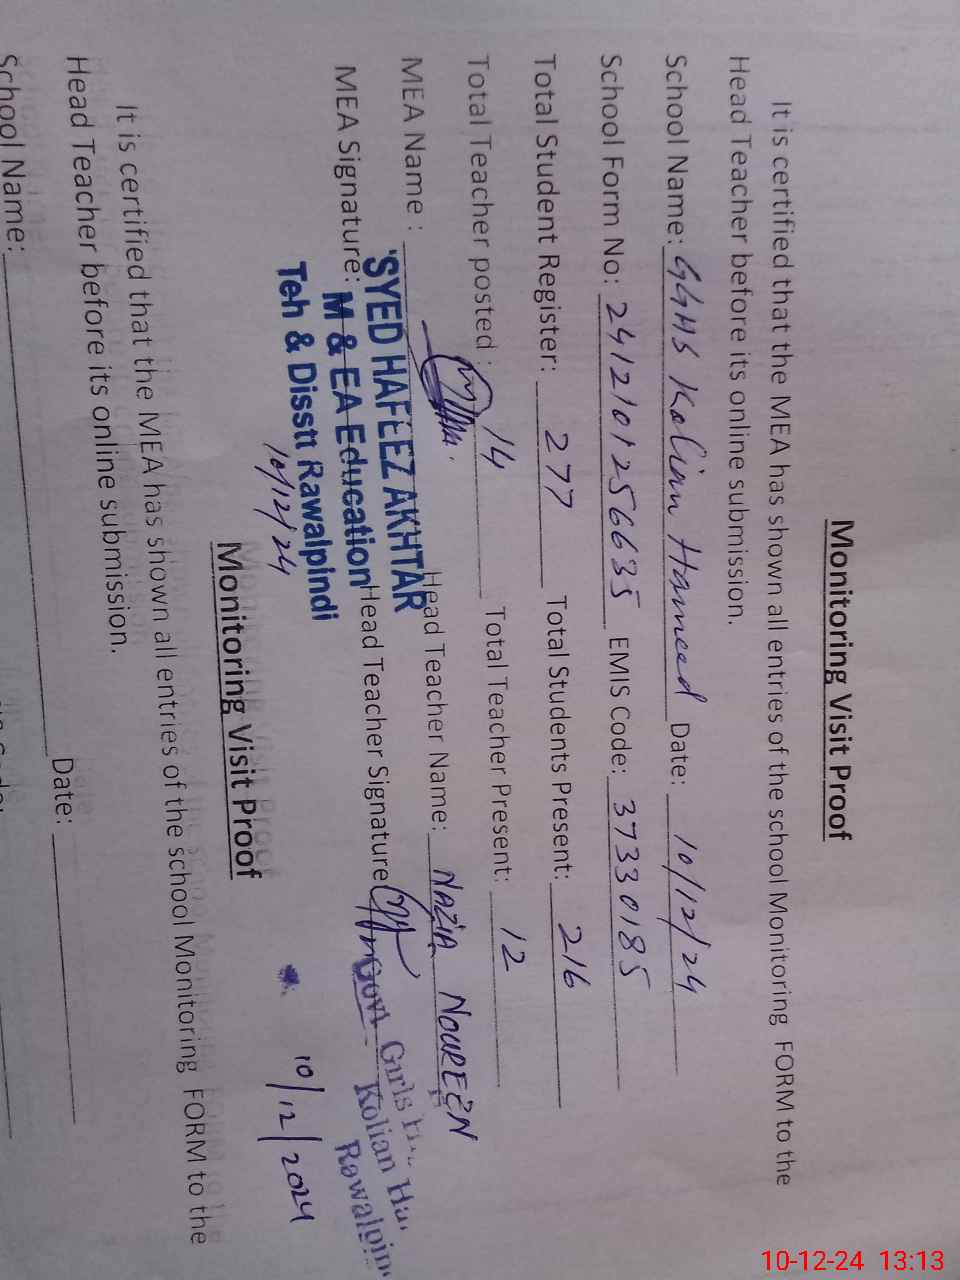 Monitoring Visit Proof
It is certified that the MEA has shown all entries of the school Monitoring FORM to the
Head Teacher before its online submission.
School Name: GGHS Kolian Hameed Date: 10/12/24
School Form No: 2412101256635 EMIS Code: 37330185
Total Student Register: 277 Total Students Present: 216
Total Teacher posted: 14 Total Teacher Present: 12
MEA Name : SYED HAFEEZ AKHTAR Head Teacher Name: NAZIA NOUREEN
MEA Signature: M & EA Education Head Teacher Signature Govt Girls
Teh & Disstt Rawalpindi Kolian
10/12/24 10/12/2024
Monitoring Visit Proof
It is certified that the MEA has shown all entries of the school Monitoring FORM to the
Head Teacher before its online submission.
School Name: Date:
10-12-24 13:13